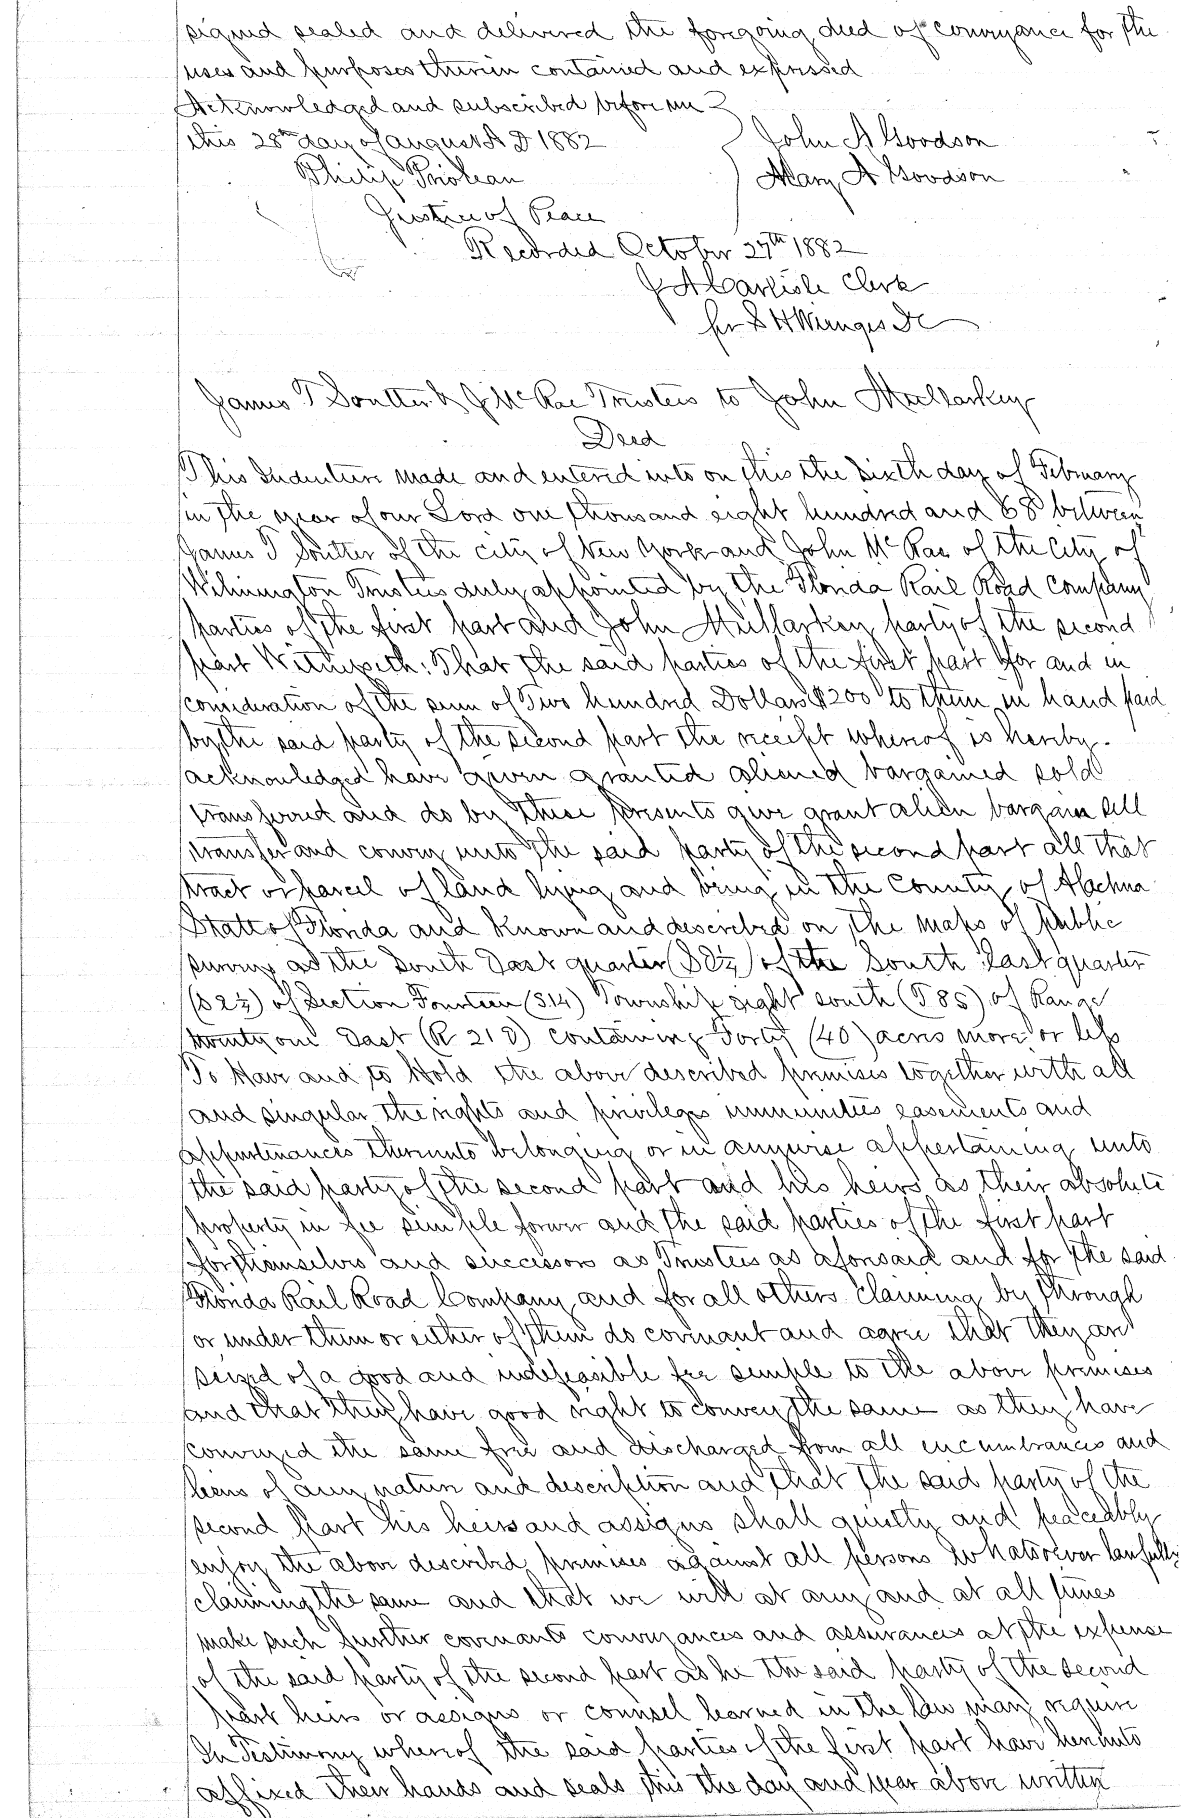 signed sealed and delivered the foregoing deed of conveyance for the
uses and purposes therein contained and expressed
Acknowledged and subscribed before me
this 28th day of August A D 1882
John A Goodson
Philip Priolean
Mary A Goodson
Justice of Peace
Recorded October 27th 1882
J A Carlisle Clerk
per S H Wienges DC
James T Soutter & J McRae Trustees to John Mullarkey
Deed
This Indenture made and entered into on this the Sixth day of February
in the year of our Lord one thousand eight hundred and 68 between
James T Soutter of the city of New York and John McRae of the City of
Wilmington Trustees duly appointed by the Florida Rail Road Company
parties of the first part and John Mullarkey party of the second
part Witnesseth: That the said parties of the first part for and in
consideration of the sum of Two hundred Dollars $200 to them in hand paid
by the said party of the second part the receipt whereof is hereby.
acknowledged have given granted aliened bargained sold
transferred and do by these presents give grant alien bargain sell
transfer and convey unto the said party of the second part all that
tract or parcel of land lying and being in the County of Alachua
State of Florida and Known and described on the maps of public
surveys as the South East quarter (SE¼) of the South East quarter
(SE¼) of Section Fourteen (S14) Township eight south (T8S) of Range
twenty one East (R 21 E) containing Forty (40) acres more or less
To Have and to Hold the above described premises together with all
and singular the rights and privileges immunities easements and
appurtenances thereunto belonging or in anywise appertaining unto
the said party of the second part and his heirs as their absolute
property in fee simple forever and the said parties of the first part
for themselves and successors as Trustees as aforesaid and for the said
Florida Rail Road Company and for all others claiming by through
or under them or either of them do covenant and agree that they are
seized of a good and indefeasible fee simple to the above premises
and that they have good right to convey the same as they have
conveyed the same free and discharged from all encumbrances and
liens of any nature and description and that the said party of the
second part his heirs and assigns shall quietly and peaceably
enjoy the above described premises against all persons whatsoever lawfully
claiming the same and that we will at any and at all times
make such further covenants conveyances and assurances at the expense
of the said party of the second part as he the said party of the second
part heirs or assigns or counsel learned in the law may require
In Testimony whereof the said parties of the first part have hereunto
affixed their hands and seals this the day and year above written